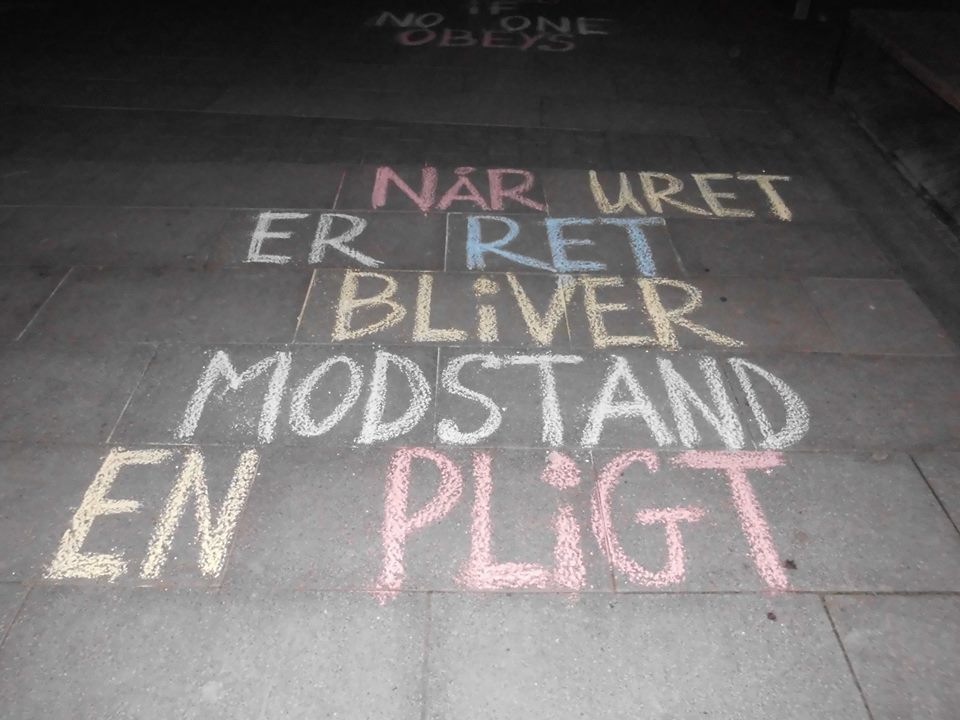 IF
NO ONE
OBEYS
NÅR URET
ER RET
BLiVER
MODSTAND
EN PLiGT